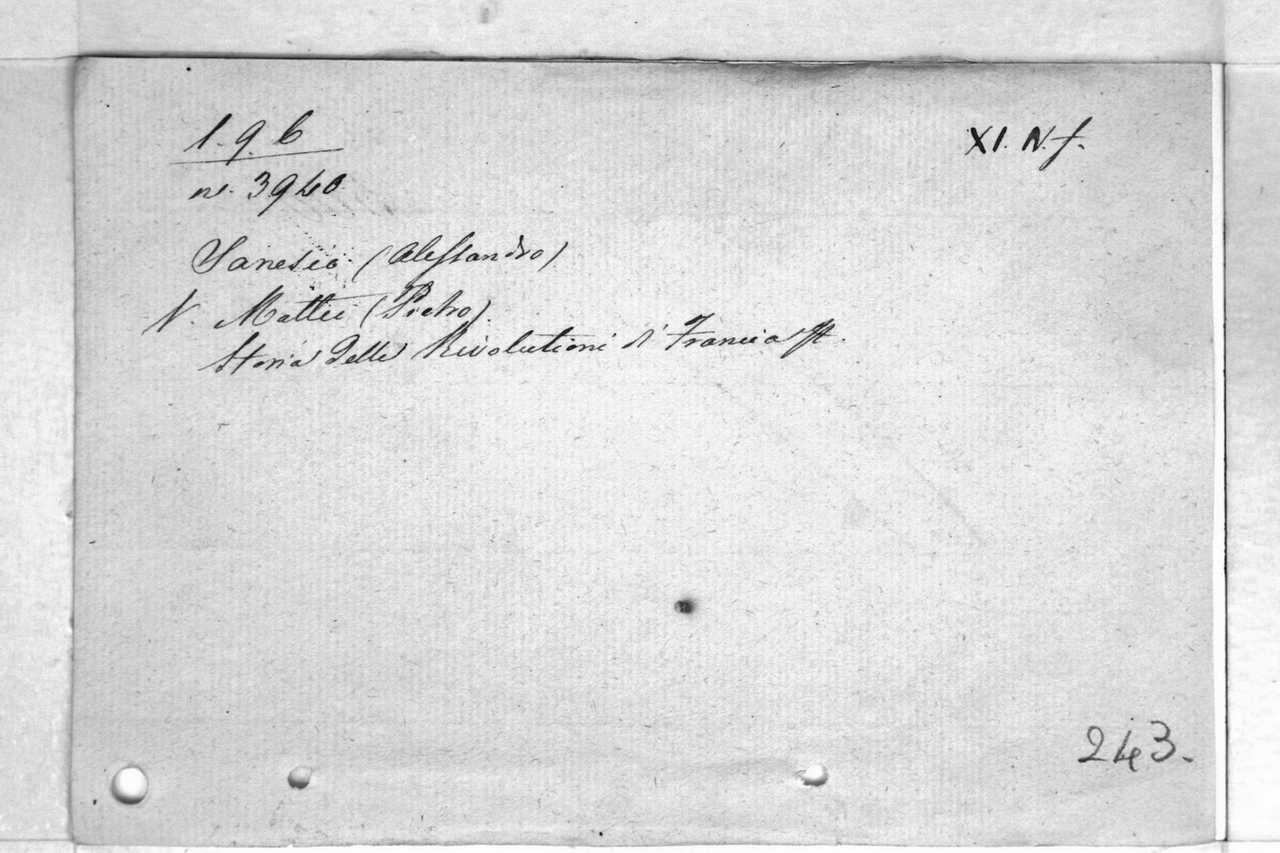 1. 9. 6
XI. N. f.
n. 3940
Sanesio (Alessandro)
V. Mattei (Pietro).
Storia delle Rivolutioni di Francia
243.